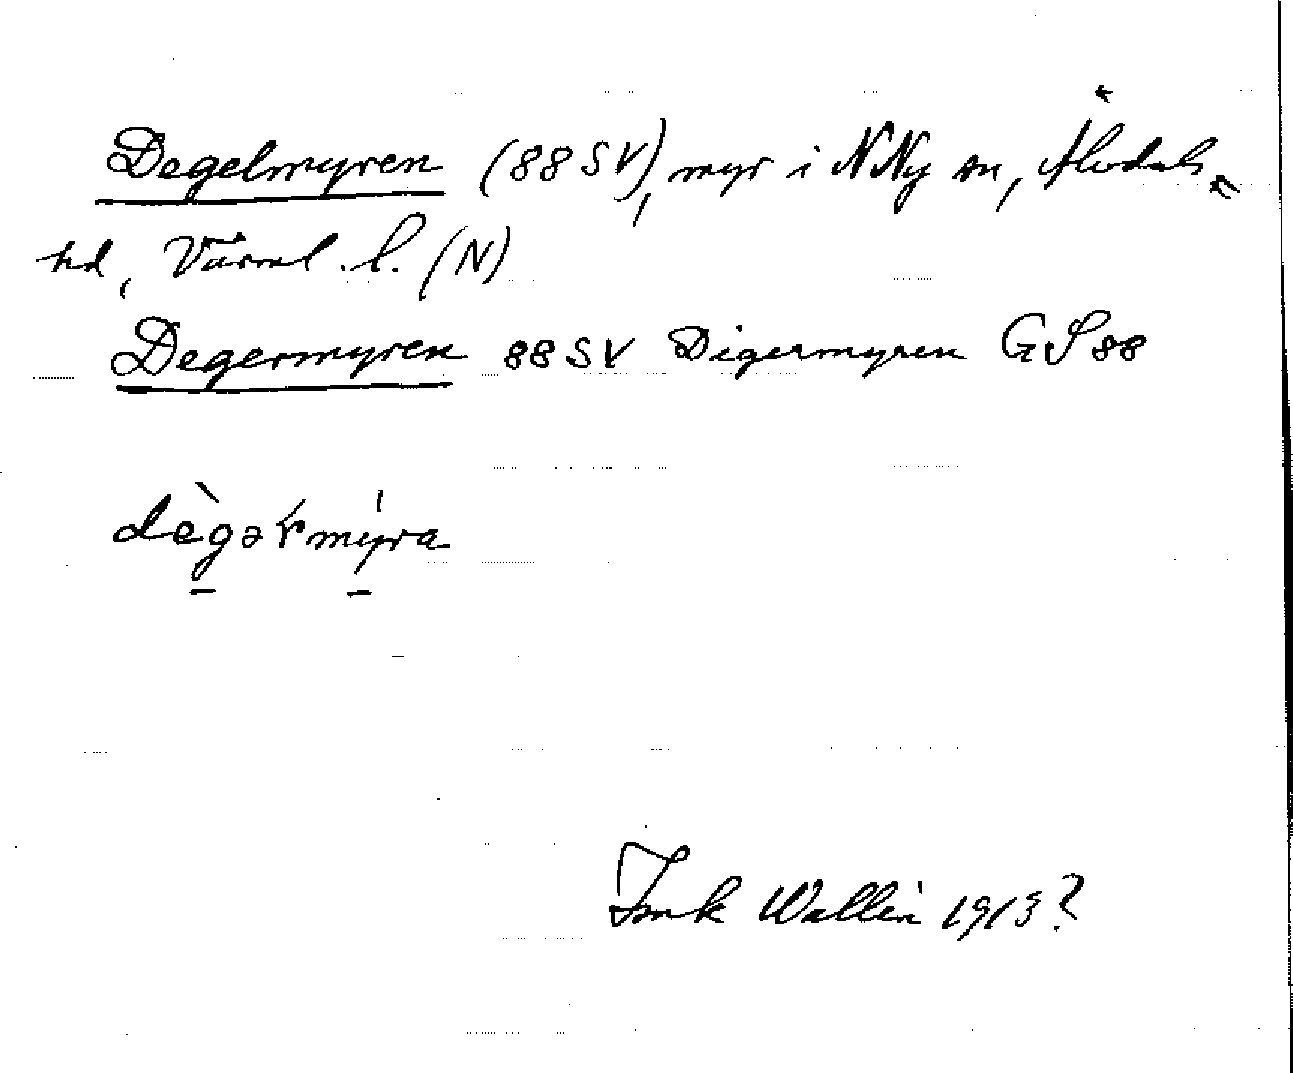 Degelmyren (88 SV), myr i N Ny sn, Älvdals
hd, Värml. l. (N)
Degermyren 88 SV Digermyren GS 88
dègərmyra
Wallin 1913?